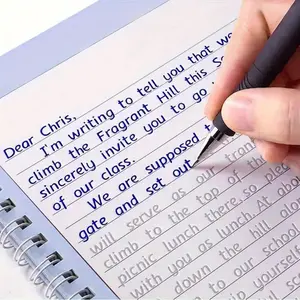 Dear Chris,
I'm writing to tell you that we
climb the Fragrant Hill this S
sincerely invite you to go
of our class.
We are supposed t
gate and set out
will serve as our tran
climb to the top of the
picnic lunch there, so pl
with you as lunch. At abo
down the hill alon
yourself